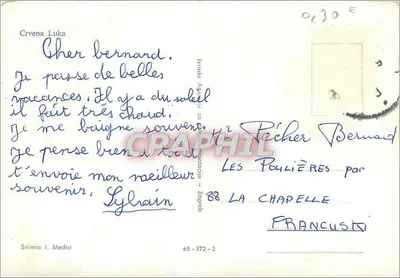 0,30 €
Crvena Luka
Cher bernard.
Je passe de belles
vacances. Il y a du soleil
il fait très chaud.
Je me baigne souvent.
Je pense bien à toi et
t'envoie mon meilleur
souvenir. Sylvain
CPAPHIL
Mr Pécher Bernard
LES POULIÈRES par
88 LA CHAPELLE
FRANCUSKI
Snimio I. Medar
65-572-2
Zagreb